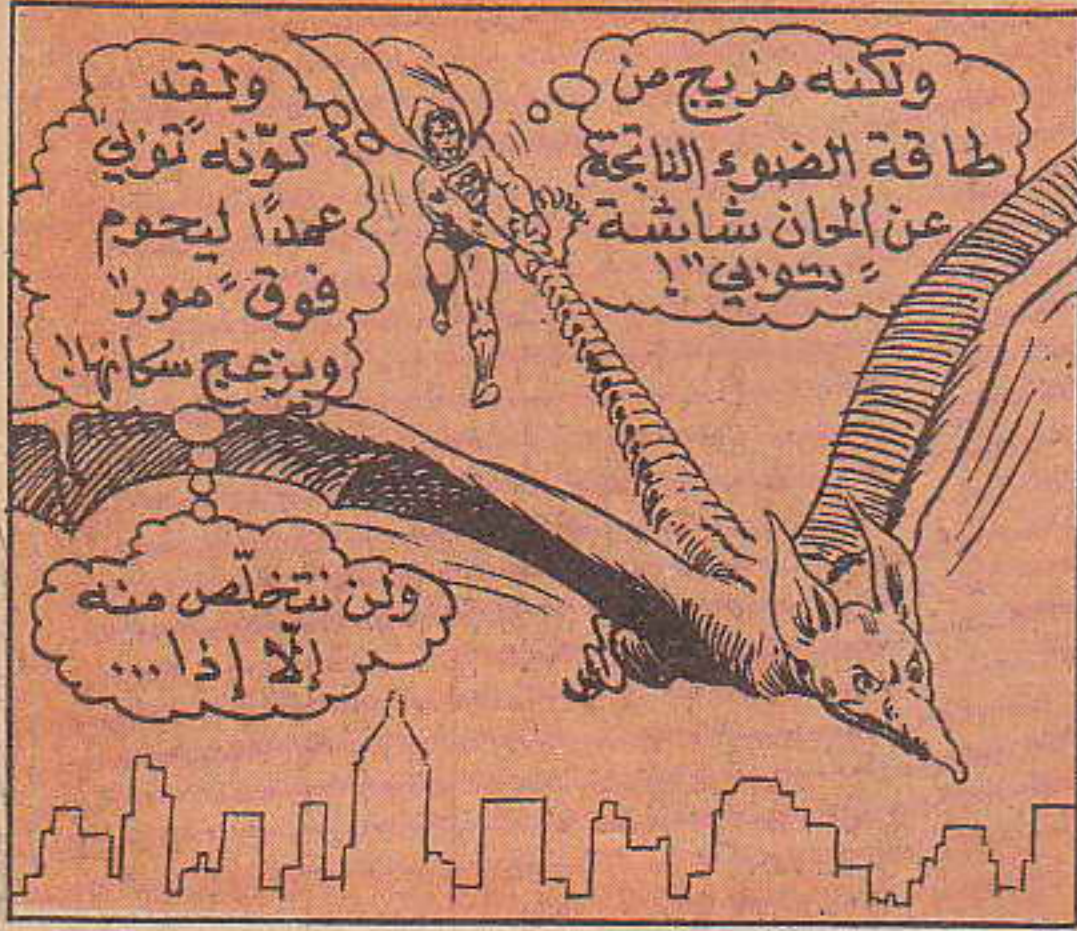 ولكنه مزيج من
طاقة الضوء الناتجة
عن ألحان شاشة
"تتوني"!
ولقد
كوّنه تتوني
عمدًا ليحوم
فوق "مور"
ويزعج سكانها!
ولن نتخلّص منه
إلّا إذا...